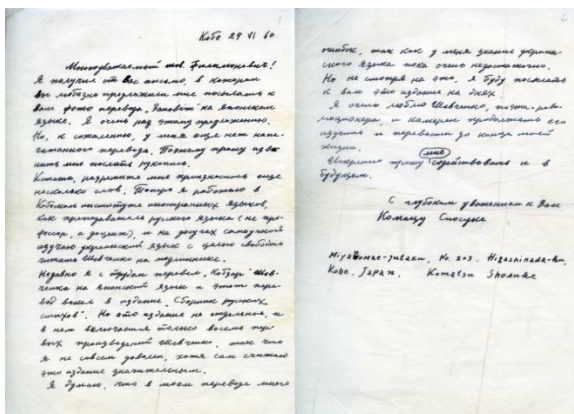 1
Кобе 29 VI 60
Многоуважаемый тов. Филипонович!
Я получил от Вас письмо, в котором
вы любезно предложили мне посылать к
вам фото перевода „Заповіт“ на японском
языке. Я очень рад этому предложению.
Но, к сожалению, у меня еще нет напе-
чатанного перевода. Поэтому прошу изви-
нить мне послать рукопись.
Кстати, разрешите мне произносить еще
несколько слов. Теперь я работаю в
Кобеком институте иностранных языков,
как преподаватель русского языка (не про-
фессор, а доцент), и на досугах самоучкой
изучаю украинский язык с целью свободно
читать Шевченко на подлиннике.
Недавно я с трудом перевел „Кобзарь“ Шев-
ченка на японский язык и этот пере-
вод вошел в издание „Сборник русских
стихов“. Но это издание не отдельное, и
в нем включается только восемь пер-
вых произведений Шевченко, так что
я не совсем доволен, хотя сам считаю
это издание значительным.
Я думаю, что в моем переводе много
2
ошибок, так как у меня знание украин-
ского языка пока очень недостаточно.
Но не смотря на это, я буду посылать
к вам это издание на днях.
Я очень люблю Шевченко, поэта-рево-
люционера, и намерен продолжать его
изучать и перевести до конца моей
жизни.
Искренно прошу мне содействовать и в
будущем.
С глубоким уважением к Вам.
Комацу Сиосуке
Miyamae-jutaku, No. 203. Higashinada-ku,
Kobe, Japan. Komatsu Shosuke